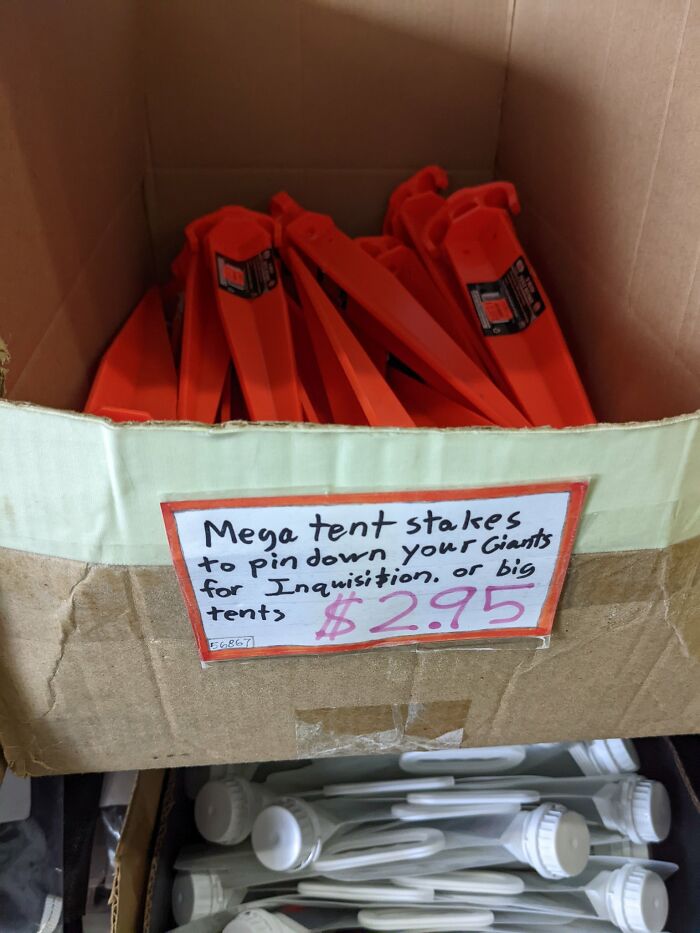 Mega tent stakes
to pin down your Giants
for Inquisition. or big
tents $2.95
56867